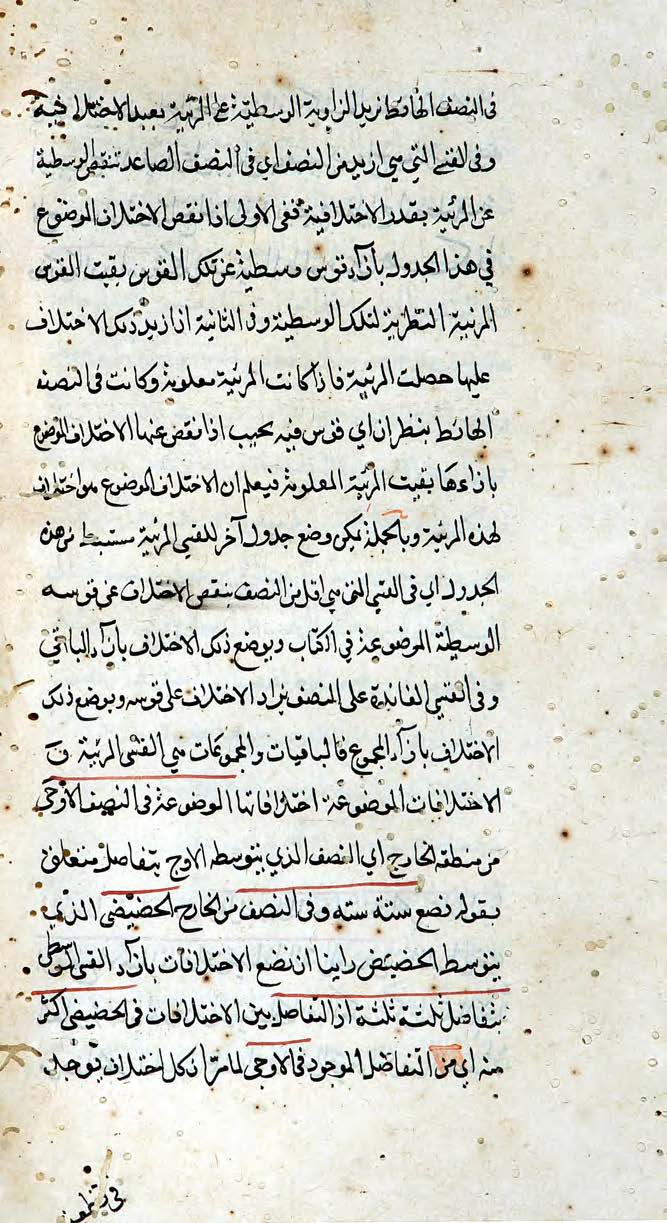 فى النصف الهابط تزيد الزاوية الوسطية على المرئية بقدر الاختلافية
وفى القسى التى هى ازيد من النصف اى فى النصف الصاعد تنقص الوسطية
عن المرئية بقدر الاختلافية ففى الاولى اذا نقص الاختلاف الموضوع
فى هذا الجدول بازآء قوس وسطية عن تلك القوس بقيت القوس
المرئية النظرية لتلك الوسطية وفى الثانية اذا زيد ذلك الاختلاف
عليها حصلت المرئية فاذا كانت المرئية معلومة وكانت فى النصف
الهابط ينظر ان اى قوس فيه بحيث اذا نقص عنها الاختلاف الموضوع
بازاءها بقيت المرئية المعلومة فيعلم ان الاختلاف الموضوع هو اختلاف
لهذه المرئية وبالجملة يمكن وضع جدول آخر للقسى المرئية مستنبط من هذه
الجدول اى فى القسى التى هى اقل من النصف ينقص الاختلاف عن قوسه
الوسطية الموضوعة فى الكتاب ويوضع ذلك الاختلاف بازآء الباقى
وفى القسى الفائدة على النصف يزاد الاختلاف على قوسه ويوضع ذلك
الاختلاف بازآء المجموع فالباقيات والمجموعات هى القسى المرئية
الاختلافات الموضوعة اختلافاتها الموضوعة فى النصف الاوجى
من منطقة الخارج اى النصف الذى يتوسطه الاوج بتفاضل متعلق
بقوله نضع ستة ستة وفى النصف من الخارج الحضيضى الذى
يتوسط الحضيض راينا ان نضع الاختلافات بازآء القسى الوسطى
بتفاضل ثلثة ثلثة اذ التفاضل بين الاختلافات فى الحضيضى اكثر
منه اى من التفاضل الموجود فى الاوجى لما مر ان كل اختلاف يوجد